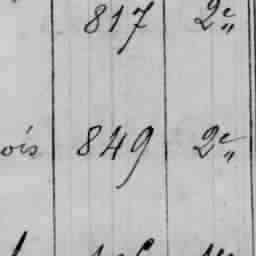 817 2e"
ois 849 2e"